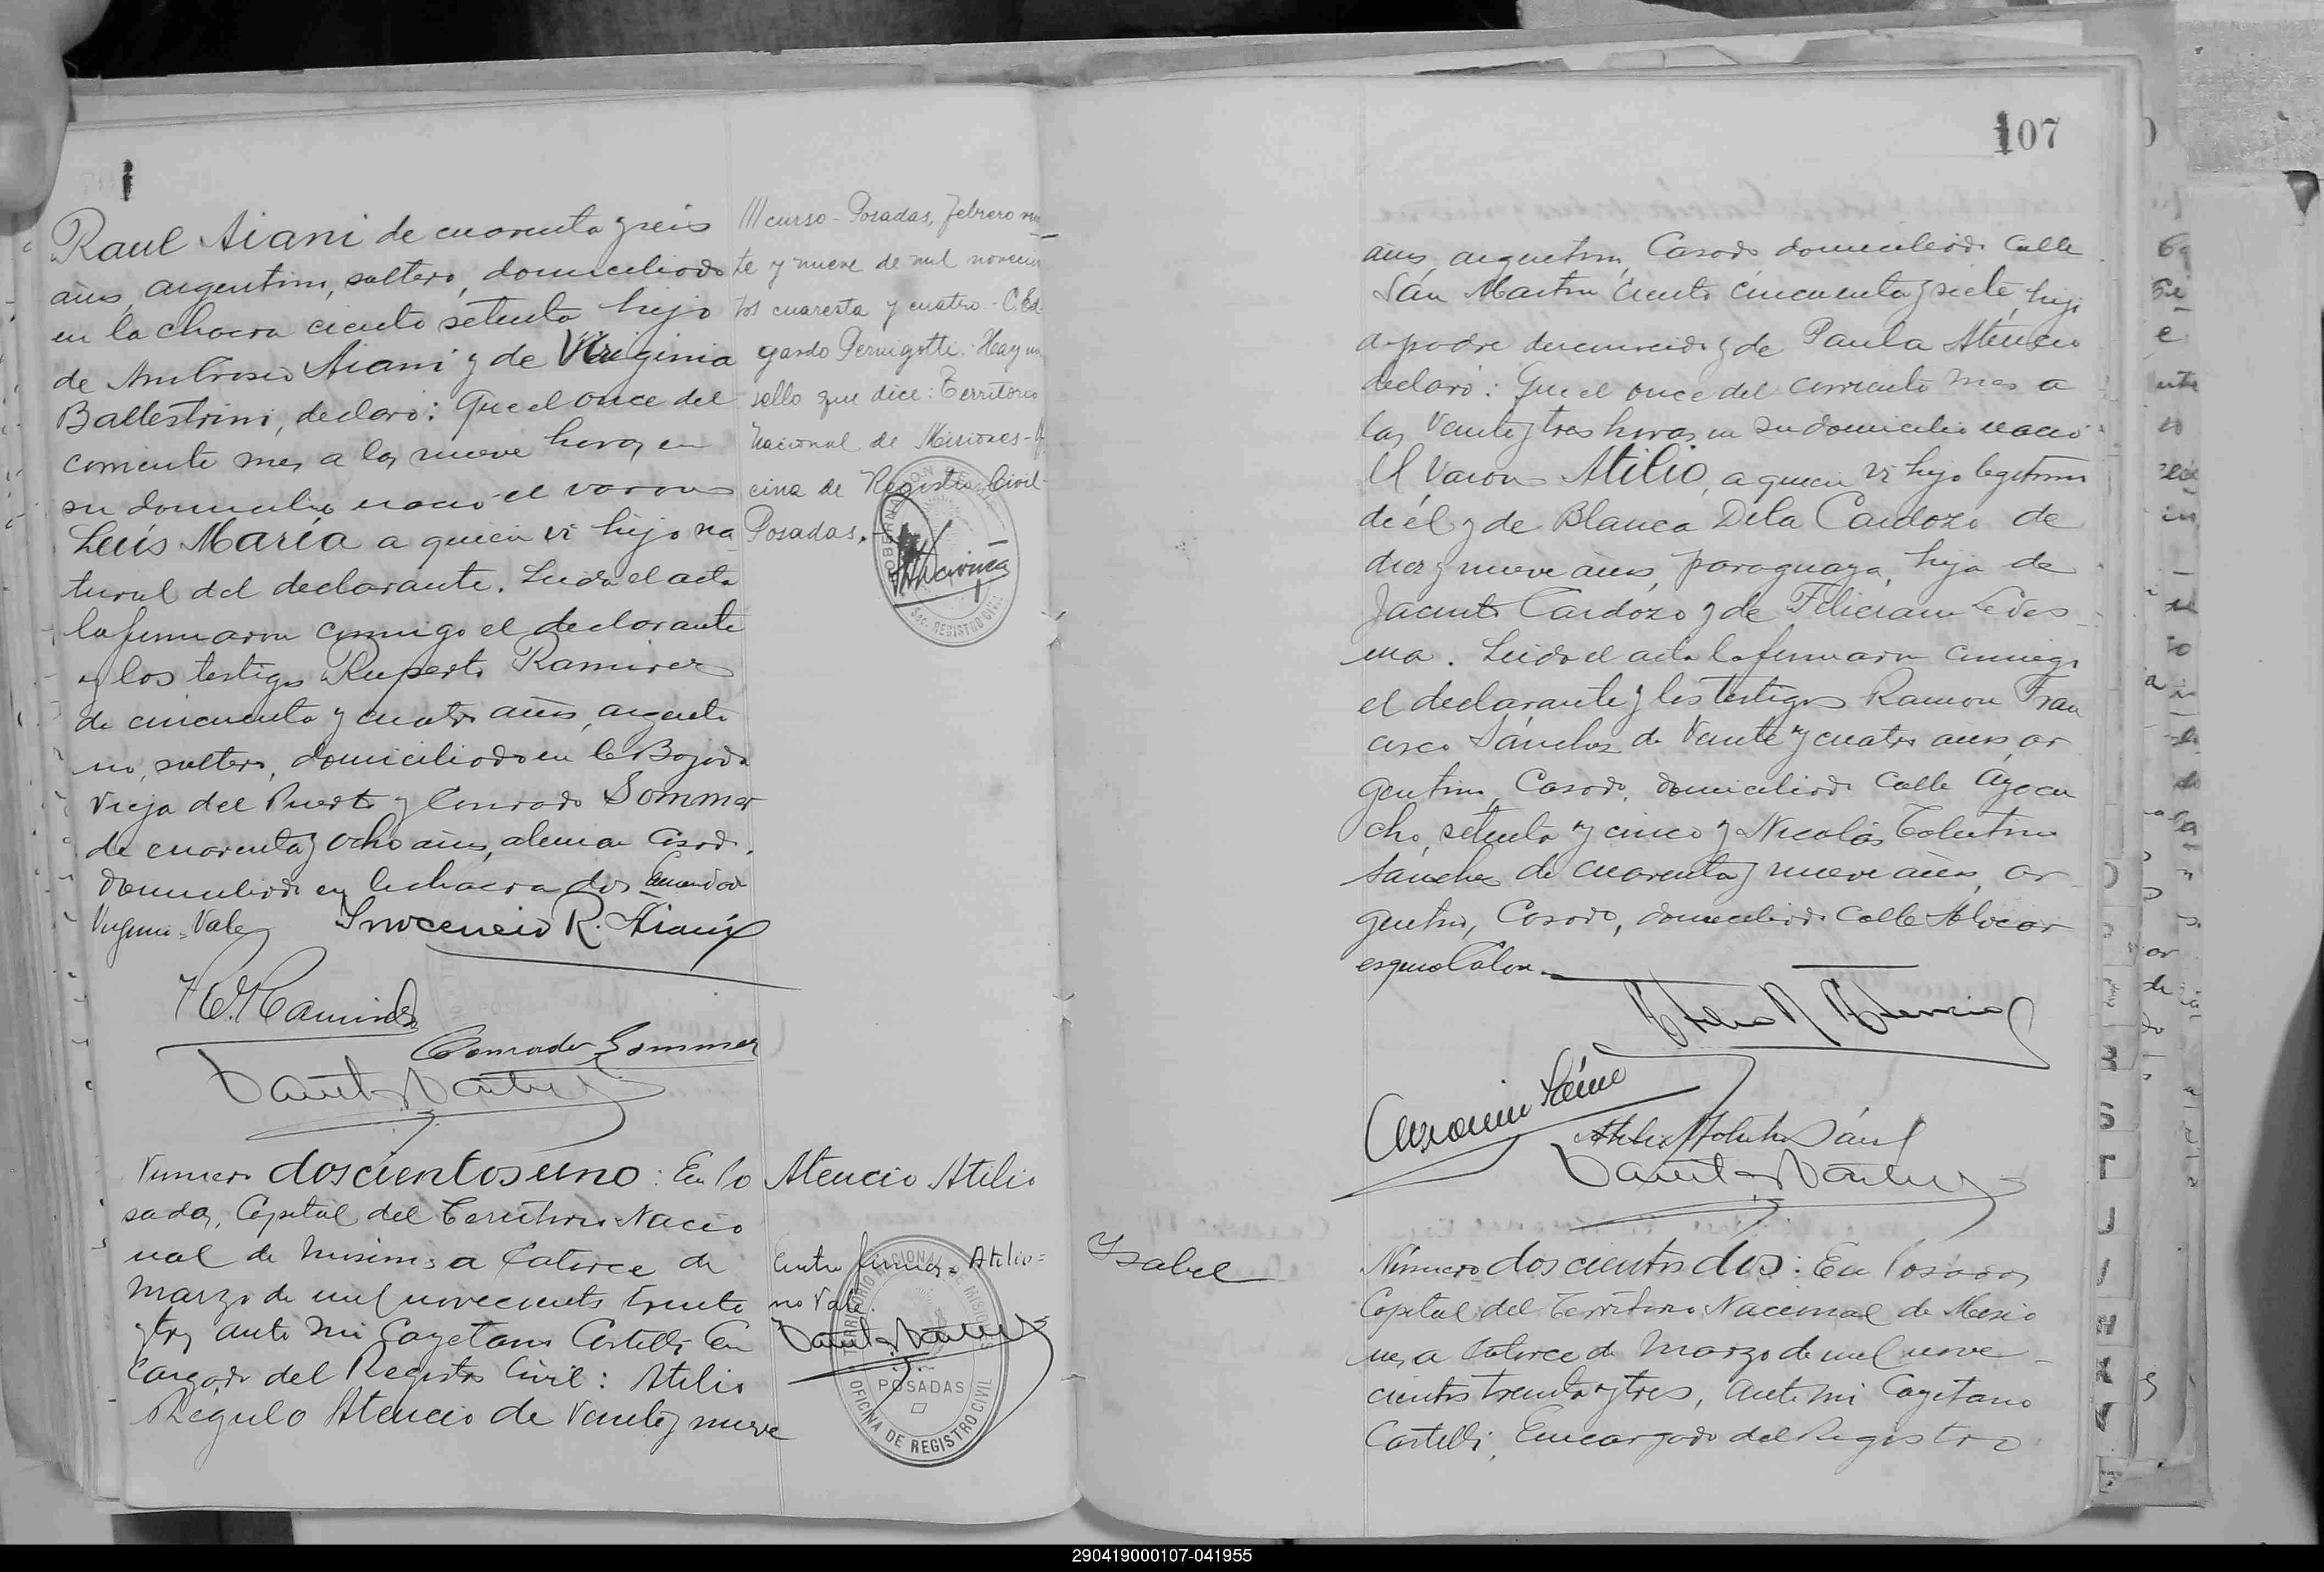 Raul Aiani de cuarenta y seis
años, argentino, soltero, domiciliado
en la chacra ciento setenta hijo
de Ambrosio Aiani y de Virginia
Ballestrini, declaró: Que el once del
corriente mes a las nueve horas en
su domicilio nació el varon
Luís María a quien vi hijo na
tural del declarante. Leida el acta
la firmaron conmigo el declarante
y los testigos Ruperto Ramirez
de cincuenta y cuatro años, argenti
no, soltero, domiciliado en la Bajada
Vieja del Puerto y Conrado Sommer
de cuarenta y ocho años, aleman casado,
domiciliado en la chacra dos Enmendado
Virginia=Vale
Inocencio R. Aiani
R. Ramirez
Conrado Sommer
III curso - Posadas, febrero vein
te y nueve de mil novecien
tos cuarenta y cuatro - C. Ed
gardo Pernigotti. Hay un
sello que dice: Territorio
Nacional de Misiones - Of
cina de Registro Civil -
Posadas.
Sec. REGISTRO CIVIL
Numero doscientos uno: En Po
sadas, Capital del Territorio Nacio
nal de Misiones a Catorce de
Marzo de mil novecientos treinta
y tres ante mi Cayetano Castelli En
cargado del Registro Civil: Atilio
Regulo Atencio de veinte y nueve
Atencio Atilio
Entre firmas = Atilio =
no Vale.
TERRITORIO NACIONAL DE MISIONES
POSADAS
OFICINA DE REGISTRO CIVIL
107
años, argentino, Casado domiciliado Calle
San Martin ciento cincuenta y siete, hijo
de padre desconocido y de Paula Atencio
declaró: Que el once del corriente mes a
las veinte y tres horas, en su domicilio nació
el varon Atilio, a quien vi hijo legitimo
de él y de Blanca Dela Cardozo de
diez y nueve años, paraguaya, hija de
Jacinto Cardozo y de Feliciana Ledes
ma. Leida el acta la firmaron conmigo
el declarante y los testigos Ramon Fran
cisco Sánchez de veinte y cuatro años ar
gentino, Casado, domiciliado Calle Ayacu
cho, setenta y cinco y Nicolás Tolentino
Sanchez de cuarenta y nueve años, ar
gentino, Casado, domiciliado Calle Bolivar
esquina Colon.
Atilio R Atencio
Isabel
Número doscientos dos: En Posadas,
Capital del Territorio Nacional de Misio
nes, a Catorce de Marzo de mil nove
cientos treinta y tres, ante mi Cayetano
Castelli, Encargado del Registro
290419000107-041955